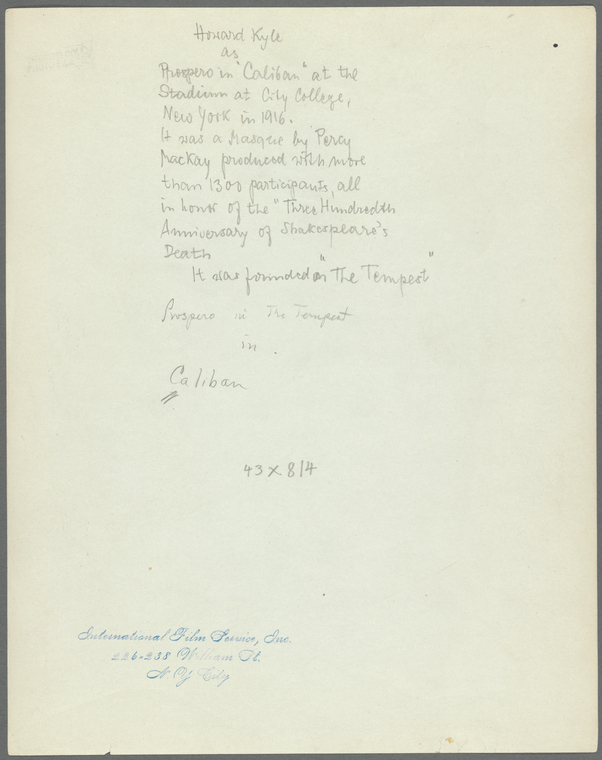 Howard Kyle
as
Prospero in "Caliban" at the
Stadium at City College,
New York in 1916.
It was a Masque by Percy
MacKay produced with more
than 1300 participants, all
in honor of the "Three Hundredth
Anniversary of Shakespeare's
Death
It was founded on "The Tempest"
Prospero in The Tempest
in.
Caliban
43 X 814
International Film Service, Inc.
226-238 William St.
N Y City